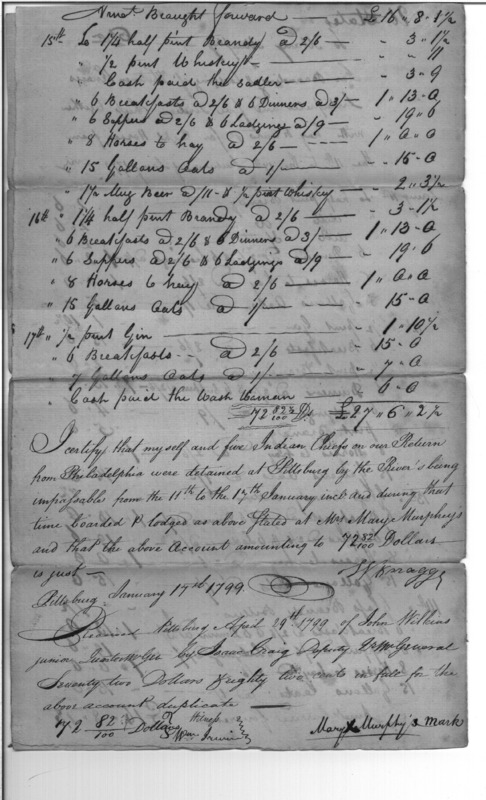 Amot. Braught forward — £16 " 8 - 1½
15th To 1¼ half pint Brandy @ 2/6 — " 3 - 1½
" ½ pint Whiskey — " " 11
" Cash paid the Sadler — " 3 - 9
" 6 Breakfasts @ 2/6 & 6 Dinners @ 3/ — 1 " 13 - 0
" 6 Suppers @ 2/6 & 6 Lodgings @ /9 — " 19 " 6
" 8 Horses to hay @ 2/6 — 1 " 0 " 0
" 15 Gallons Oats @ 1/ — " 15 - 0
" 1½ Mug Beer @ /11 - & ½ pint Whiskey — " 2 " 3½
16th " 1¼ half pint Brandy @ 2/6 — " 3 - 1½
" 6 Breakfasts @ 2/6 & 6 Dinners @ 3/ — 1 " 13 - 0
" 6 Suppers @ 2/6 & 6 Lodgings @ /9 — " 19 " 6
" 8 Horses to hay @ 2/6 — 1 " 0 " 0
" 15 Gallons Oats @ 1/ — " 15 - 0
17th " ½ pint Gin — " 1 " 10½
" 6 Breakfasts — @ 2/6 — " 15 - 0
" 7 Gallons Oats @ 1/ — " 7 - 0
" Cash paid the Wash Woman 6 - 0
72 82½/100 Ds. £27 " 6 " 2½
I certify that myself and five Indian Chiefs on our Return
from Philadelphia were detained at Pittsburg by the River's being
impassable from the 11th to the 17th January incl. and during that
time boarded & lodged as above stated at Mrs Mary Murpheys
and that the above Account amounting to 72 82/100 Dollars
is just —
Pittsburg January 17th 1799.
Received Pittsburg April 29th 1799 of John Wilkins
junior Quarter M Gen by Isaac Craig Deputy Qr M General
Seventy two Dollars & eighty two cents in full for the
above account duplicate —
72 82/100 Dollars
Witness
Wm Irwin
Mary X Murphy's mark